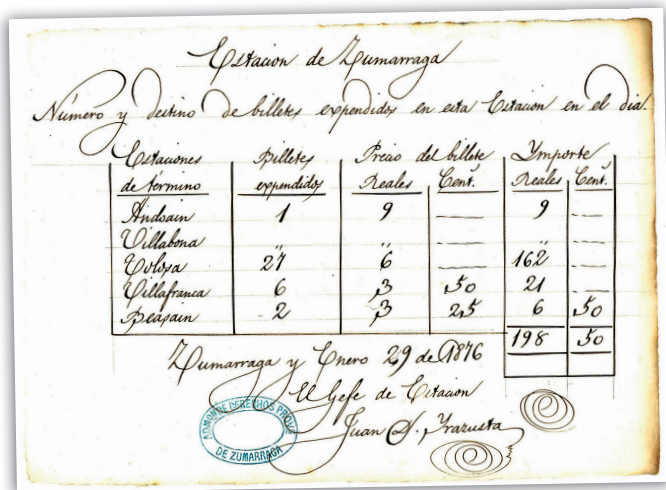 Estacion de Zumarraga
Número y destino de billetes expendidos en esta Estacion en el dia.
Estaciones Billetes Precio del billete Ymporte
de término expendidos Reales Cent. Reales Cent.
Andoain 1 9 — 9 —
Villabona " " — " —
Tolosa 27 6 — 162 —
Villafranca 6 3 50 21 —
Beasain 2 3 25 6 50
198 50
Zumarraga y Enero 29 de 1876
El Gefe de Estacion
Juan Yrazusta
ADMON DE DERECHOS PROV
DE ZUMARRAGA